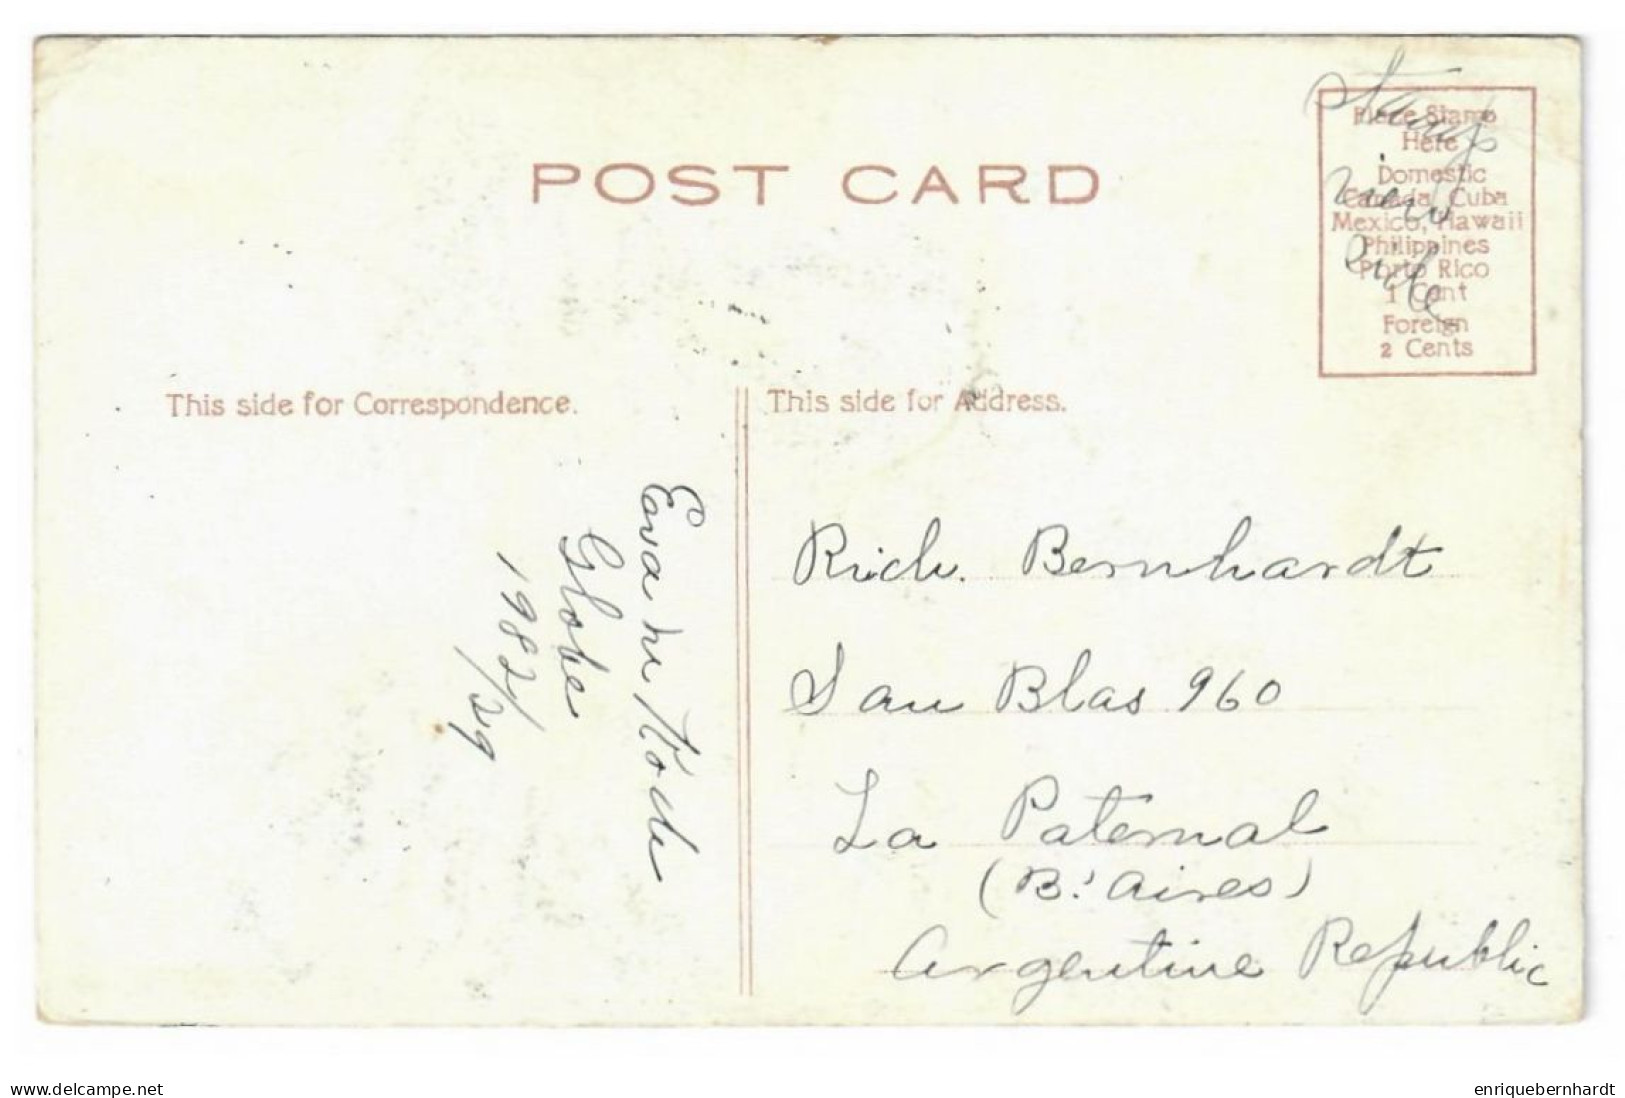 POST CARD
Place Stamp
Here
Domestic
Canada, Cuba
Mexico, Hawaii
Philippines
Porto Rico
1 Cent
Foreign
2 Cents
Stamp
view
side
This side for Correspondence.
This side for Address.
Globe
1982/29
Rich. Bernhardt
San Blas 960
La Paternal
(Bs Aires)
Argentine Republic
www.delcampe.net
enriquebernhardt